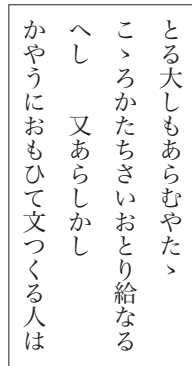 とる大しもあらむやたゝ
こゝろかたちさいおとり給なる
へし　又あらしかし
かやうにおもひて文つくる人は